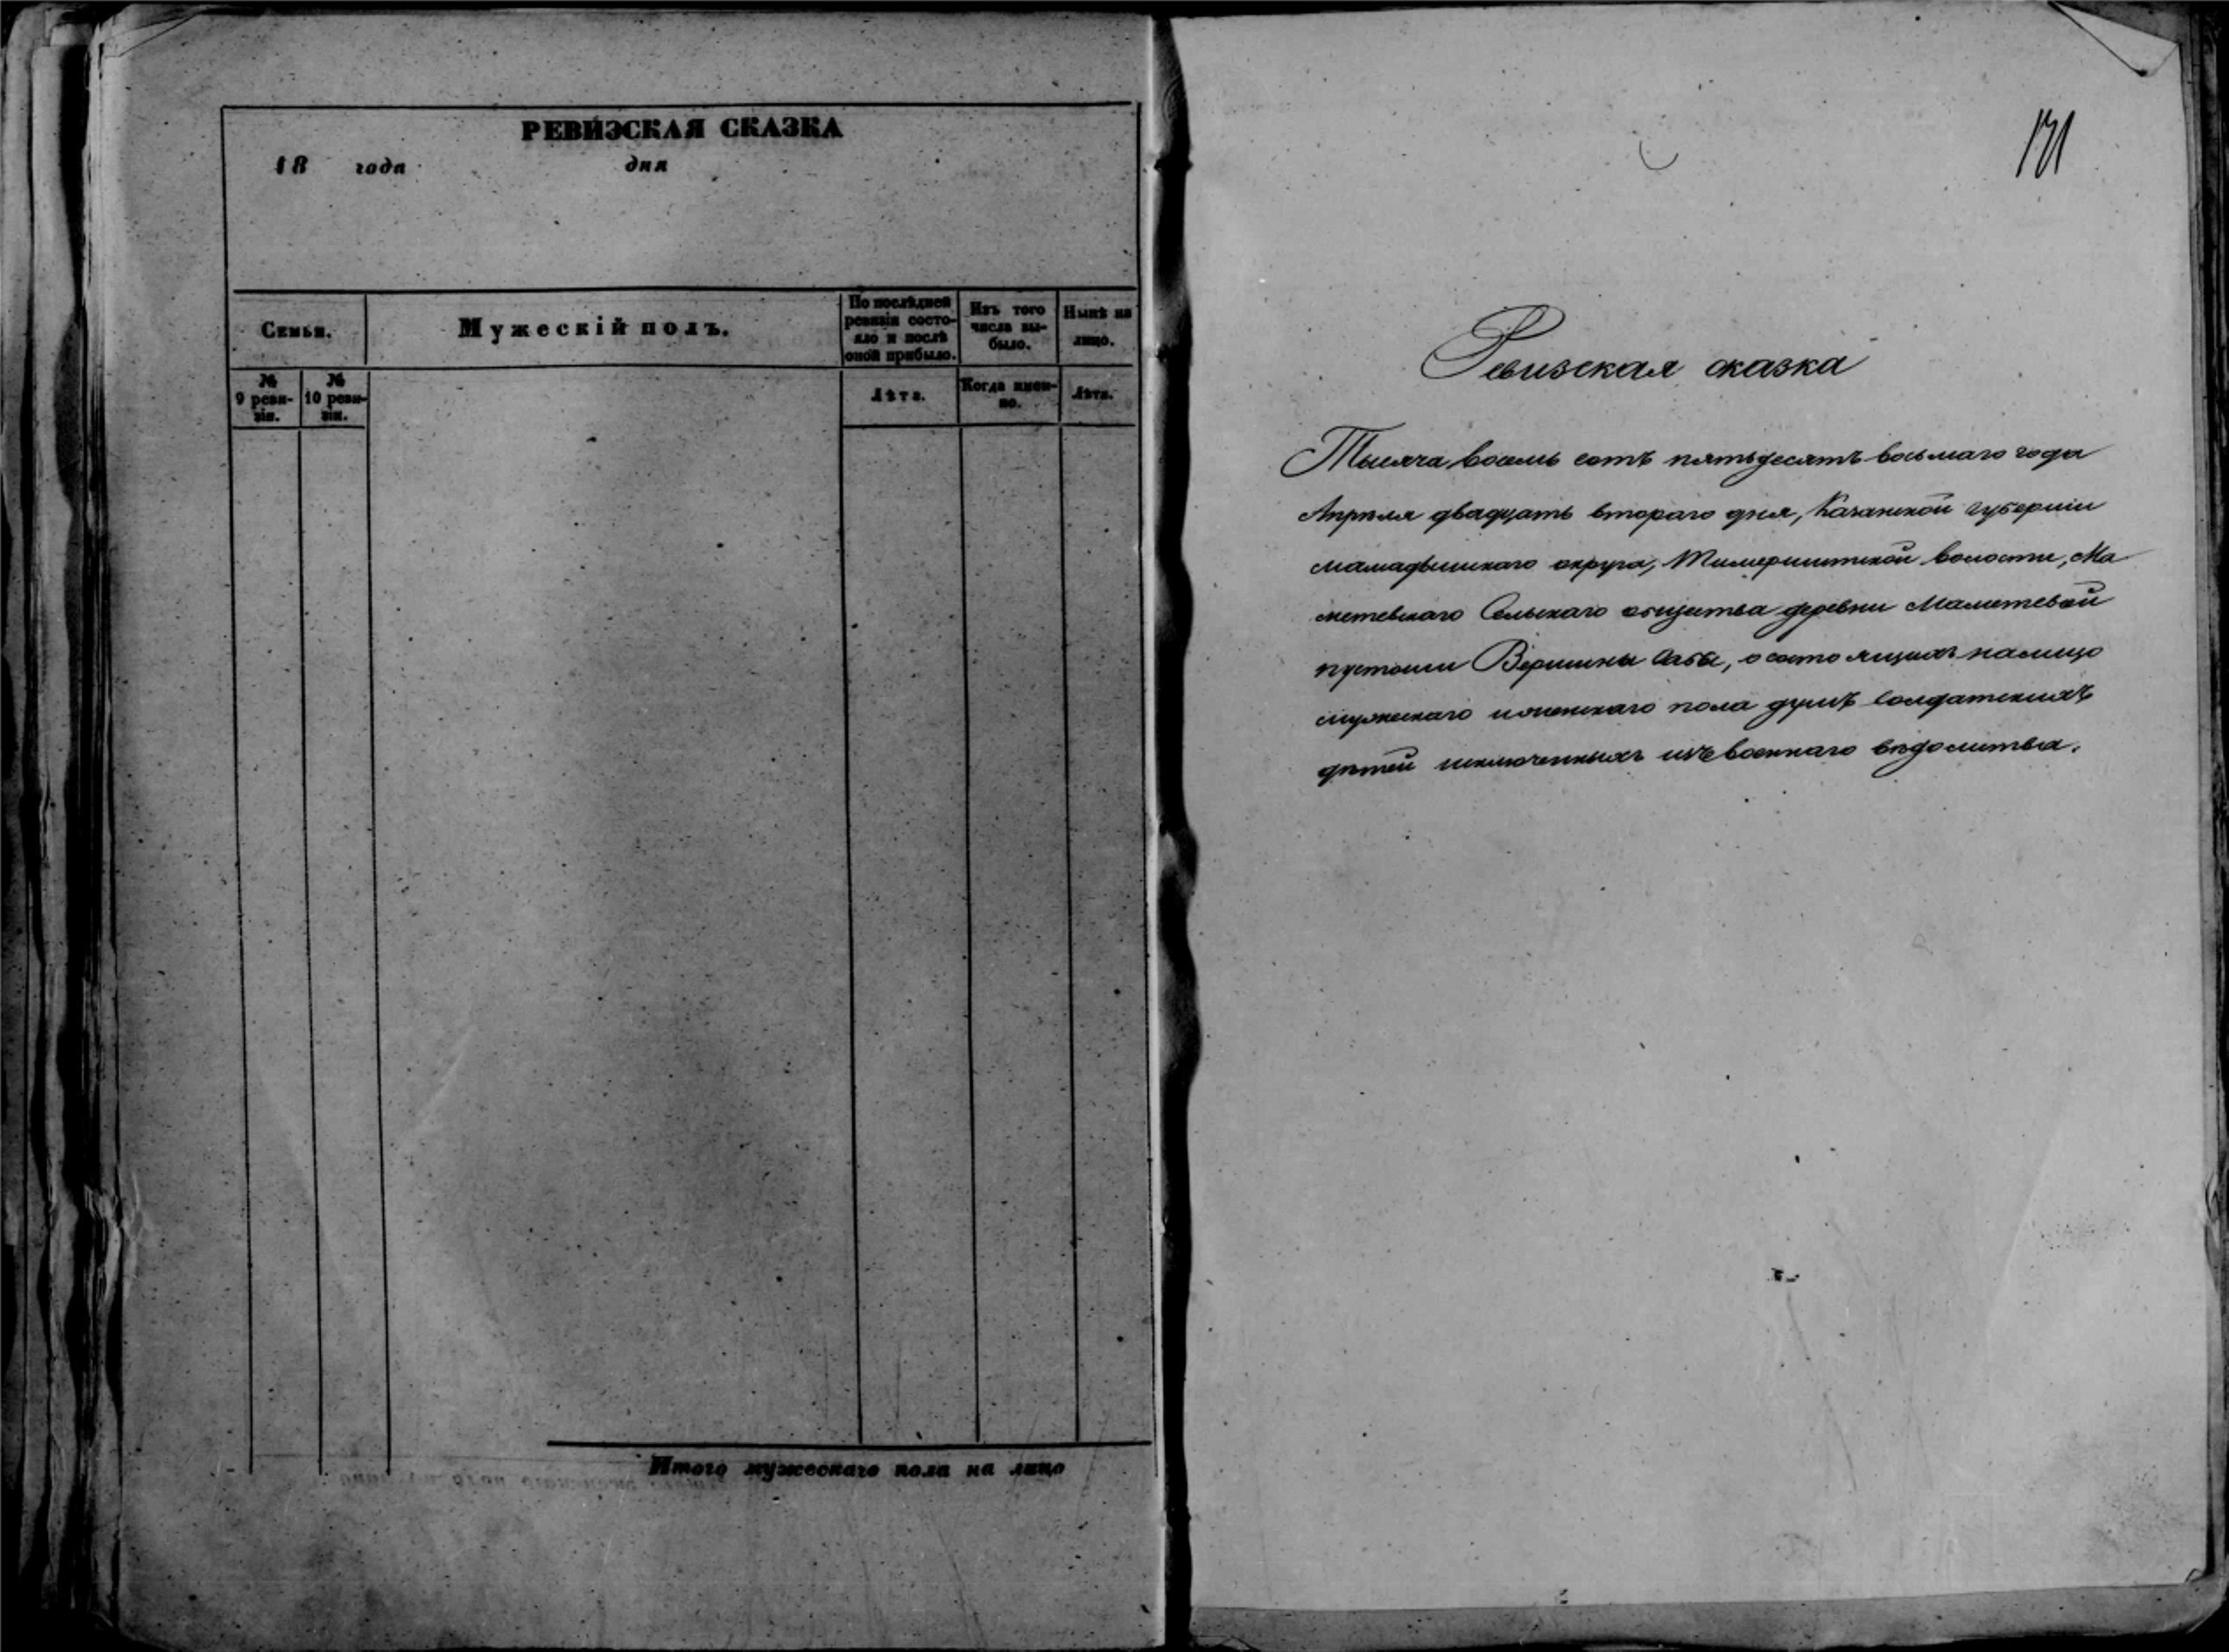 РЕВИЗСКАЯ СКАЗКА
18 года дня
Семьи.
Мужескій полъ.
По послѣдней ревизіи состо-
яло и послѣ
оной прибыло.
Изъ того
числа вы-
было.
Нынѣ на
лицо.
№
9 реви-
зіи.
№
10 реви-
зіи.
Лѣта.
Когда имен-
но.
Лѣта.
Итого мужескаго пола на лицо
Ревизская сказка
Тысяча восемь сотъ пятьдесятъ восьмаго года
Апрѣля двадцать втораго дня, Казанской губерніи
Мамадышскаго округа, волости, Ма
метевскаго Сельскаго общества деревни Маметевой
пустоши Вершины Сабы, о состоящихъ налицо
мужескаго и женскаго пола душъ солдатскихъ
дѣтей исключенныхъ изъ военнаго вѣдомства.